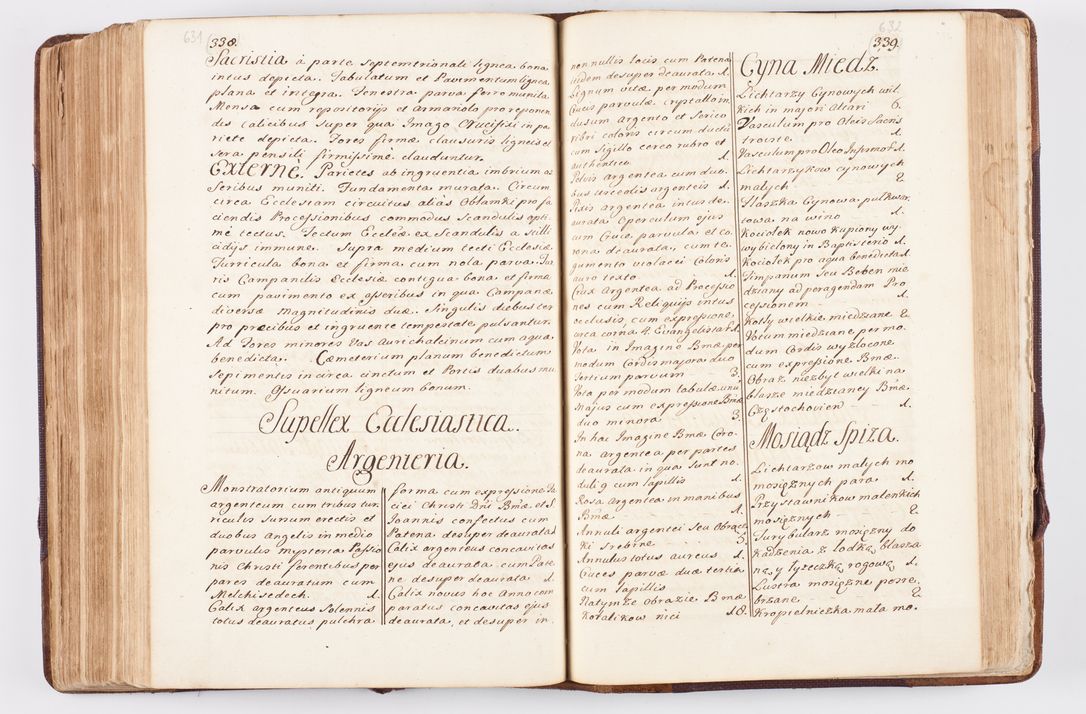 631
338.
Sacristia à parte Septemtrionali lignea bona
intus depicta. Tabulatum et Pavimentum lignea
plana et integra. Fenestra parva ferro munita
Mensa cum repositorijs et Armariolo pro reponen
dis calicibus super qua Imago Crucifixi in pa
riete depicta. Fores firmæ clausuris ligneis et
sera pensili firmissime clauduntur.
Externe. Parietes ab ingruentia imbrium as
seribus muniti. Fundamenta murata. Circum
circa Ecclesiam circuitus aliàs Obłamki pro fa
ciendis Processionibus commodus Scandulis opti
mè tectus. Tectum Ecclæ ex Scandulis a stilli
cidijs immune. Supra medium tecti Ecclesiæ
Turricula bona et firma cum nola parva. Tur
ris Campanilis Ecclesiæ contigua bona et firma
cum pavimento ex asseribus in qua Campanæ
diversæ magnitudinis duæ. Singulis diebus ter
pro precibus et ingruente tempestate pulsantur.
Ad Fores minores Vas Aurichalcinum cum aqua
benedicta. Cæmeterium planum benedictum
Sepimentis in circa cinctum et Portis duabus mu
nitum. Ossuarium ligneum bonum.
Supellex Ecclesiastica.
Argenteria.
Monstratorium antiquum
argenteum cum tribus tur
riculis sursum erectis et
duobus Angelis in medio
parvulis mysteria Passio
nis Christi ferentibus per
partes deauratum cum
Melchisedech. 1.
Calix argenteus Solennis
totus deauratus pulchra
forma cum expressione Fa
ciei Christi Dni Bmæ et S.
Joannis confectus cum
Patena desuper deaurata 1.
Calix argenteus concavitas
ejus deaurata cum Pate
na desuper deaurata 1.
Calix novus hoc Anno com
paratus concavitas ejus
deaurata, et desuper in
632
339.
nonnullis locis cum Patena
itidem desuper deaurata 1.
Lignum vitæ per modum
Crucis parvulæ crystallo in
clusum argento et Serico
rubri coloris circumductu
cum sigillo cereo rubro et
authentico 1.
Pelvis argentea cum duo
bus urceolis argenteis 1.
Pixis argentea intus de
aurata Operculum ejus
cum Cruce parvula et co
rona deaurata, cum te
gumento violacei coloris
auro texto 1.
Crux Argentea ad Processio
nes cum Reliquijs intus
occlusis, cum expressione
circa corna 4. Evangelistar 1.
Vota in Imagine Bmæ per
modum Cordis majora duo
Tertium parvum 3.
Vota per modum tabulæ unū
Majus cum expressione Bmæ
duo minora 3.
In hac Imagine Bmæ Coro
na argentea per partes
deaurata in qua sunt no
duli 9 cum lapillis 1.
Rosa argentea in manibus
Bmæ 1.
Annuli argentei seu Obrącz
ki Srebrne 3.
Annulus totus aureus 1.
Cruces parvæ duæ tertia
cum lapillis
Na tymże Obrazie Bmæ
Koralikow nici 18.
Cyna Miedz.
Lichtarzy Cynowych wiel
kich in majori Altari 6.
Vasculum pro Oleis Sacris
troiste 1.
Vasculum pro Oleo Infirmor 1.
Lichtarzykow cynowych
małych 2
Flaszka Cynowa pułkwar
towa na wino 1.
Kociołek nowo kupiony wy
wybielony in Baptisterio 1.
Kociołek pro aqua benedicta 1.
Timpanum seu Beben mie
dziany ad peragendam Pro
cessionem 1.
Kotły wielkie miedziane 2
Votum miedziane per mo
dum Cordis wyzłocone
cum expressione Bmæ
Obraz niezbyt wielki na
blasze miedzianey Bmæ
Częstochovien 1.
Mosiądz Spiza.
Lichtarzow małych mo
mosiężnych para 1.
Przystawnikow maleńkich
mosiężnych 2
Turybularz mosiężny do
Kadzenia z lodką blasza
ną y łyżeczką rogową 1.
Lustra mosiężne posre
brzane 2.
Kropielniczka mała mo.